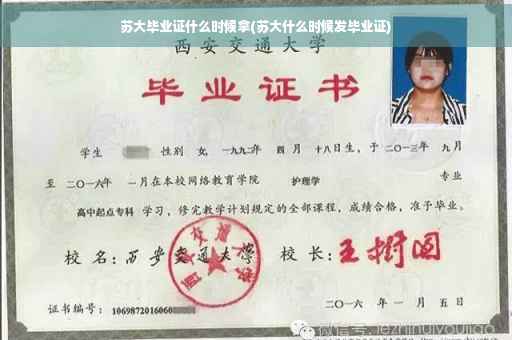 苏大毕业证什么时候拿(苏大什么时候发毕业证)
西安交通大学
毕业证书
学生 性别 女, 一九九二年 四月 十八日生, 于 二〇一三年 九月
至 二〇一六年 一月在本校网络教育学院 护理学 专业
高中起点专科 学习, 修完教学计划规定的全部课程, 成绩合格, 准予毕业。
校 名: 西安交通大学 校 长: 王树国
西安交通大学
证书编号: 1069872016060
二〇一六年 一月 五日
微信号: jezhihuiyoujiao